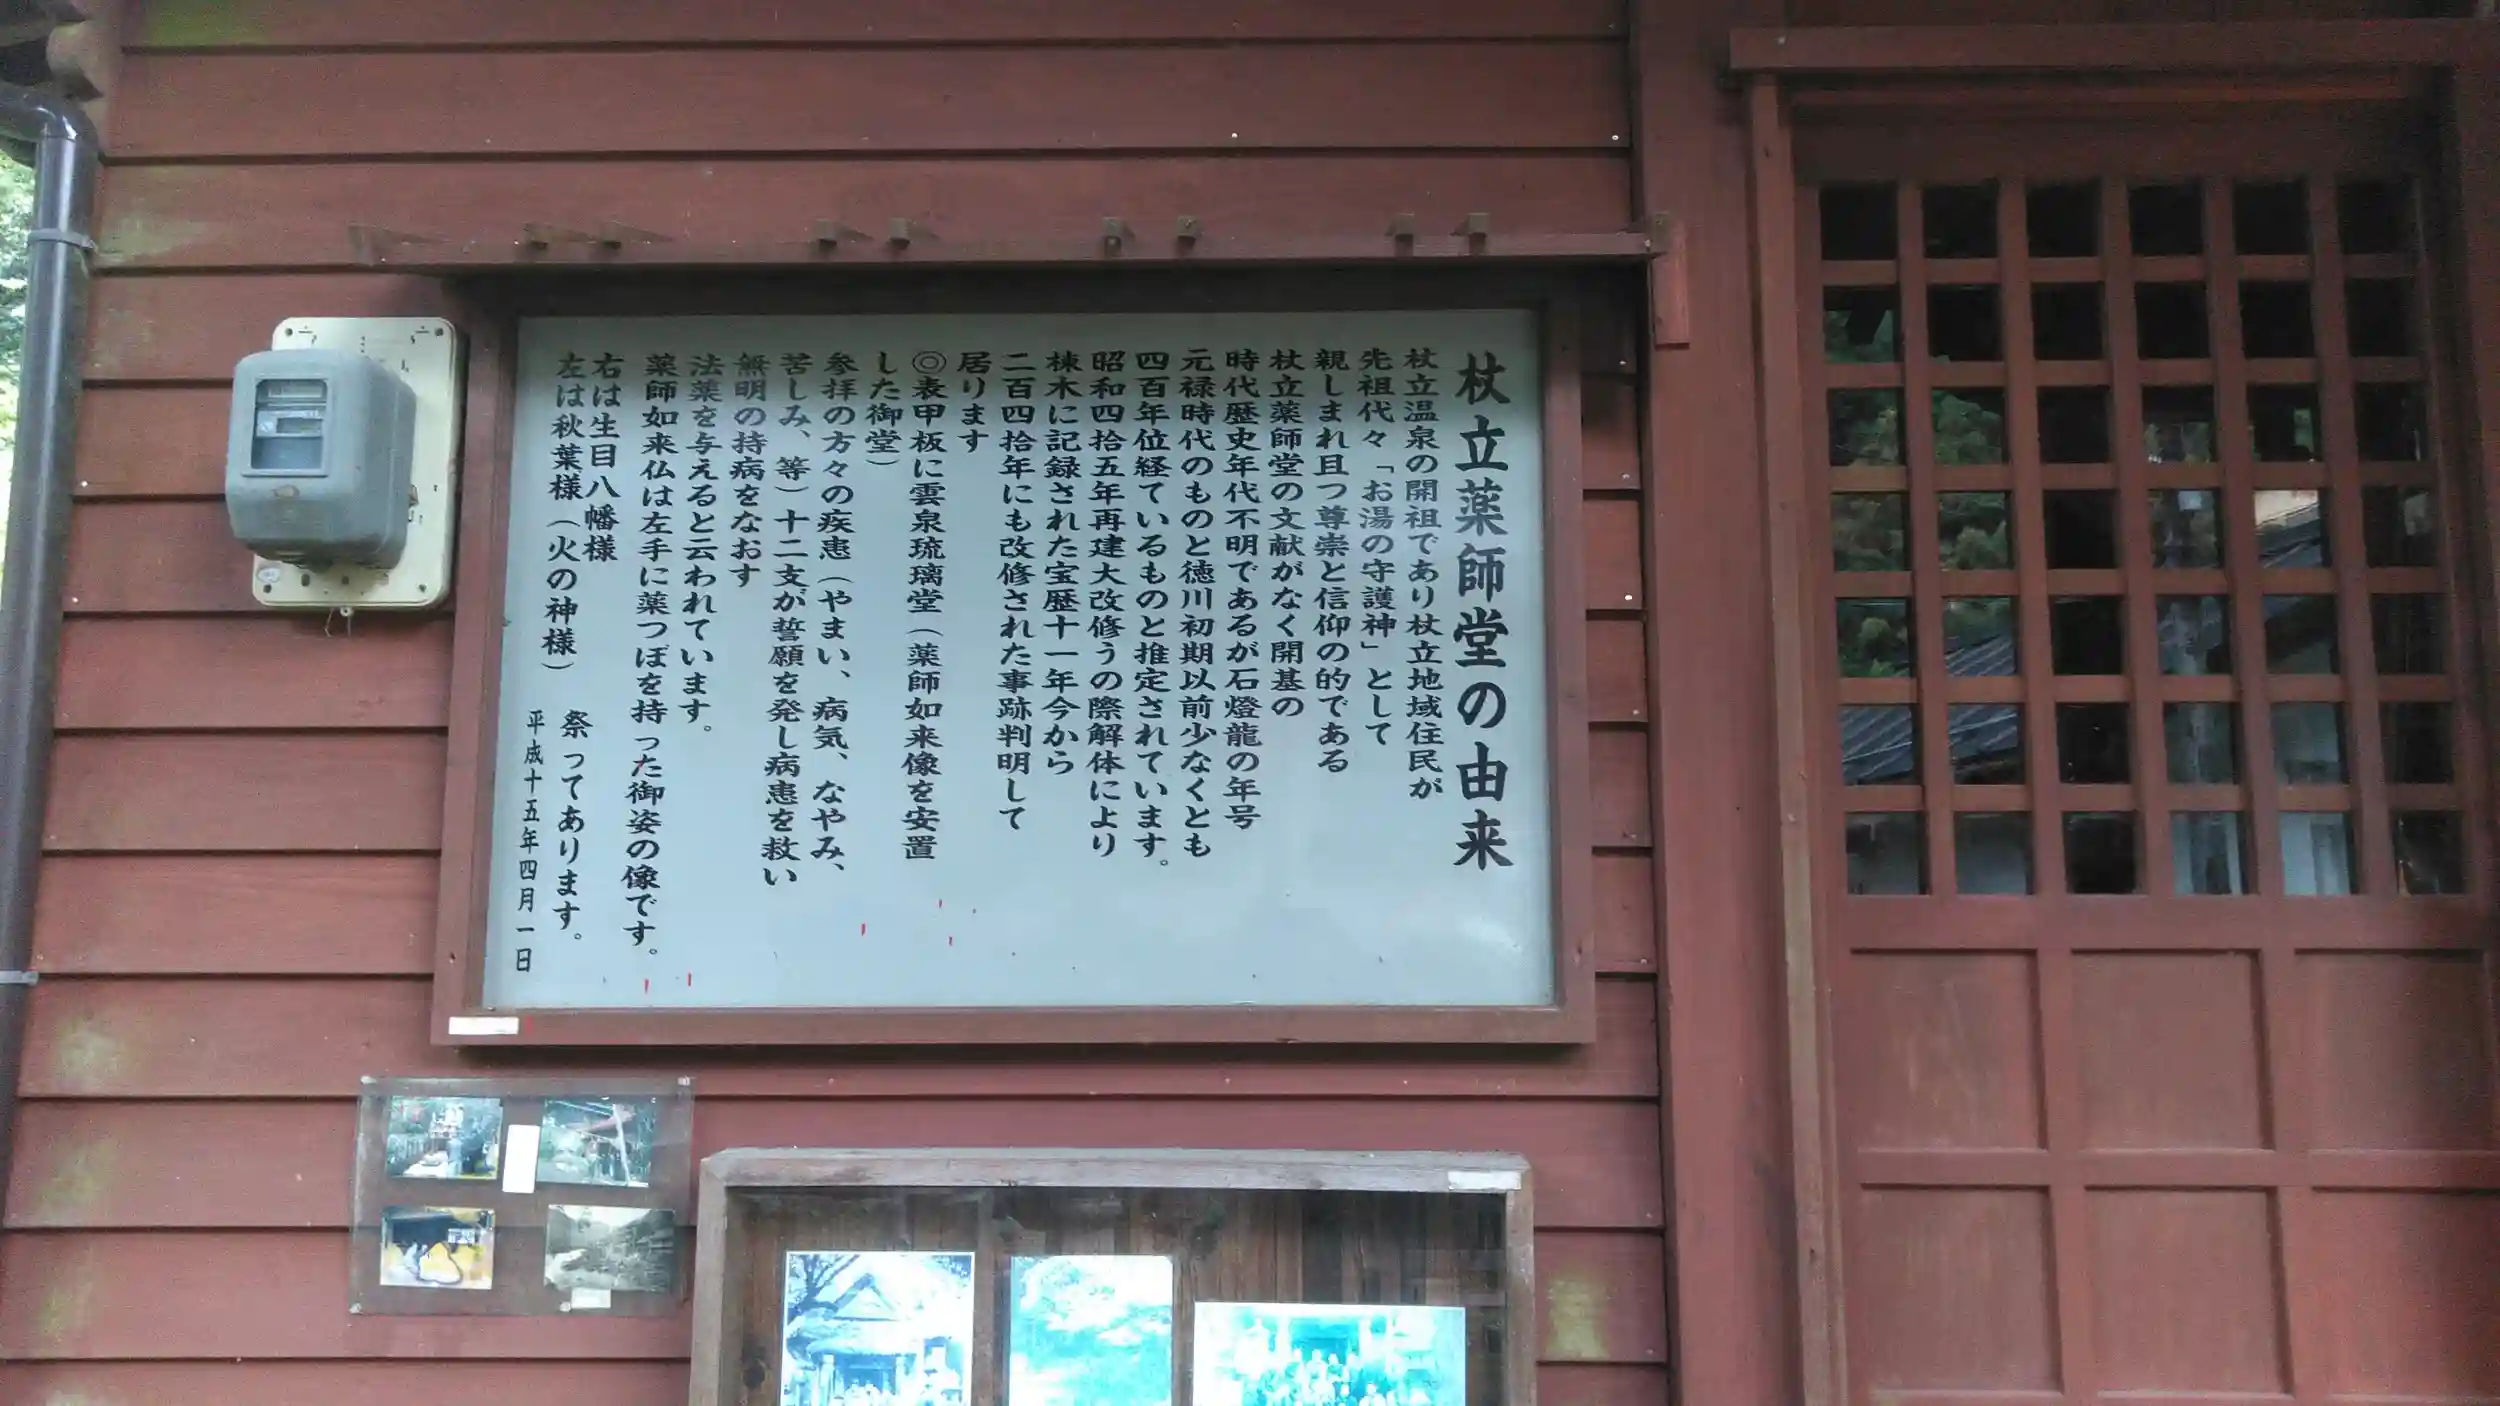 杖立薬師堂の由来
杖立温泉の開祖であり杖立地域住民が
先祖代々「お湯の守護神」として
親しまれ且つ尊崇と信仰の的である
杖立薬師堂の文献がなく開基の
時代歴史年代不明であるが石燈龍の年号
元禄時代のものと徳川初期以前少なくとも
四百年位経ているものと推定されています。
昭和四拾五年再建大改修うの際解体により
棟木に記録された宝歴十一年今から
二百四拾年にも改修された事跡判明して
居ります
◎表甲板に雲泉琉璃堂(薬師如来像を安置
した御堂)
参拝の方々の疾患(やまい、病気、なやみ、
苦しみ、等)十二支が誓願を発し病患を救い
無明の持病をなおす
法薬を与えると云われています。
薬師如来仏は左手に薬つぼを持った御姿の像です。
右は生目八幡様
左は秋葉様(火の神様)
祭ってあります。
平成十五年四月一日